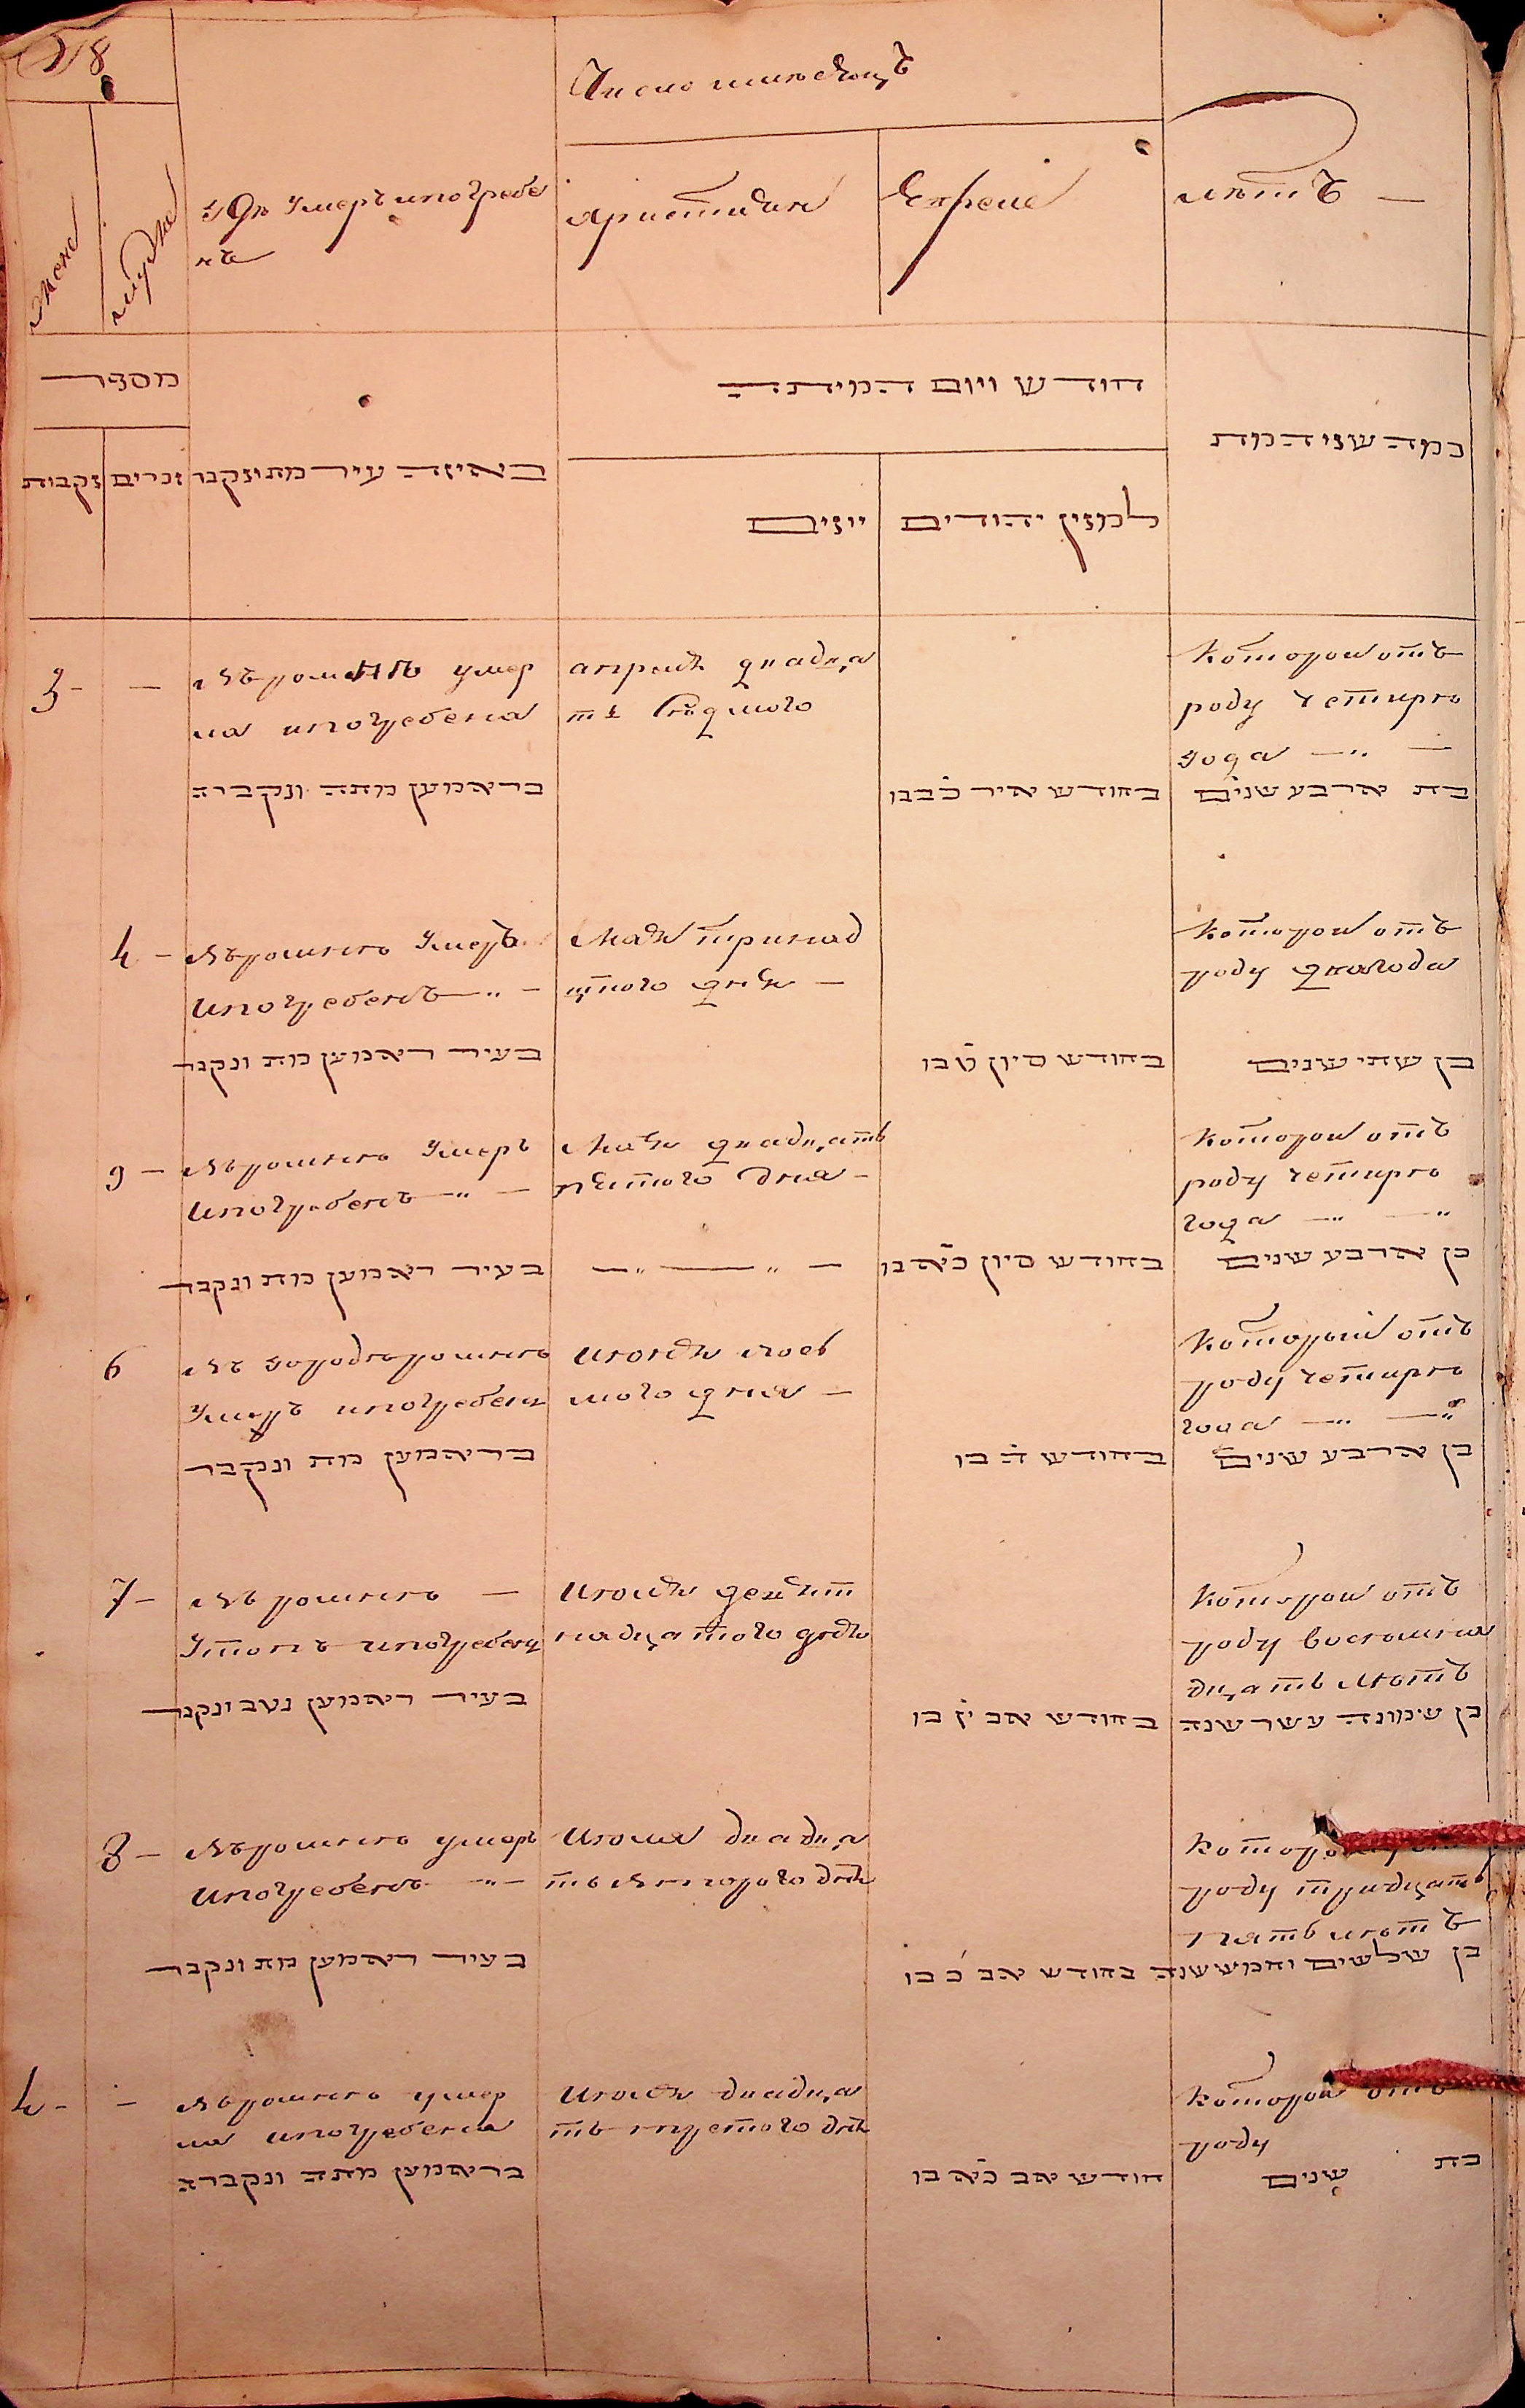 58
Число имесяцъ
жене
мужа
гдѣ Умеръ ипогребе
нъ
християн
Еврeи
лѣтъ —
מספר
חודש ויום המיתה
כמה שני המת
נקבות
זכרים
באיזה עיר מת ונקבר
יונים
למנין יהודים
3 - —
въромнѣ умер
ла ипогребена
בראמען מתה ונקברה
апреля двадца
ть Седмого
בחודש אייר כ̇ב בו
Которои отъ
роду четирѣ
года — „ —
בת ארבע שנים
4 -
въромнѣ Умеръ
Ипогребенъ — „ -
בעיר ראמען מת ונקבר
Мая тринад
цтого дня —
בחודש סיון ט̇ בו
Которои отъ
роду двагода
בן שתי שנים
9 -
въромнѣ Умеръ
Ипогребенъ — „ —
בעיר ראמען מת ונקבר
Мая двадцать
пятого дня -
— „ — „ —
בחודש סיון כ̇א בו
Которои отъ
роду четирѣ
года — „ — „
בן ארבע שנים
6
въ городѣромнѣ
Умеръ ипогребенъ
בראמען מת ונקבר
Июля восв
мого дня —
בחודש ה̇ בו
Который отъ
роду четирѣ
года — „ — „
בן ארבע שנים
7 -
въ ромнѣ —
Утопъ ипогребенъ
בעיר ראמען נטב ונקבר
Июля девят
надцатого дня
בחודש אב י̇ז בו
Которои отъ
роду восемна
дцать лѣтъ
בן שמונה עשר שנה
8 -
въромнѣ умеръ
Ипогребенъ — „ —
בעיר ראמען מת ונקבר
Июля двадца
ть второго дня
בחודש אב כ̇ בו
роду тридцать
пять лѣтъ
בן שלשים וחמש שנה
4 - -
въромнѣ умер
ла ипогребена
בראמען מתה ונקברה
Июля двадца
ть третого дня
חודש אב כ̇א בו
Которои отъ
роду
בת שנים